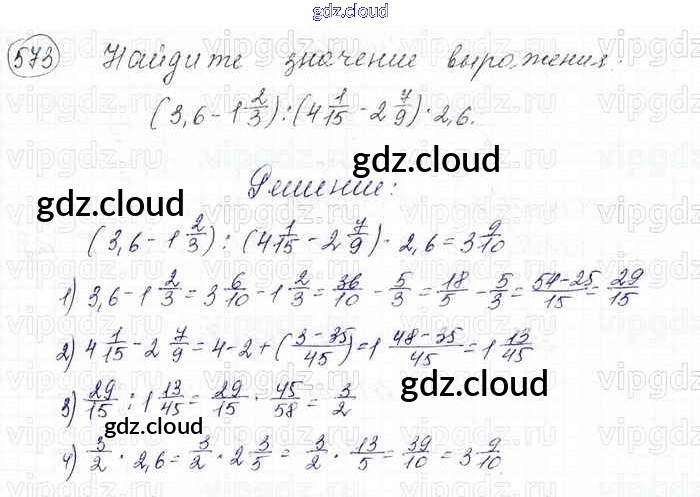 gdz.cloud
573 Найдите значение выражения:
(3,6 - 1 2/3) : (4 1/15 - 2 7/9) · 2,6.
gdz.cloud
Решение:
gdz.cloud
(3,6 - 1 2/3) : (4 1/15 - 2 7/9) · 2,6 = 3 9/10
1) 3,6 - 1 2/3 = 3 6/10 - 1 2/3 = 36/10 - 5/3 = 18/5 - 5/3 = (54-25)/15 = 29/15
2) 4 1/15 - 2 7/9 = 4 - 2 + ((3-35)/45) = 1 (48-35)/45 = 1 13/45
gdz.cloud
3) 29/15 : 1 13/45 = 29/15 · 45/58 = 3/2
gdz.cloud
4) 3/2 · 2,6 = 3/2 · 2 3/5 = 3/2 · 13/5 = 39/10 = 3 9/10